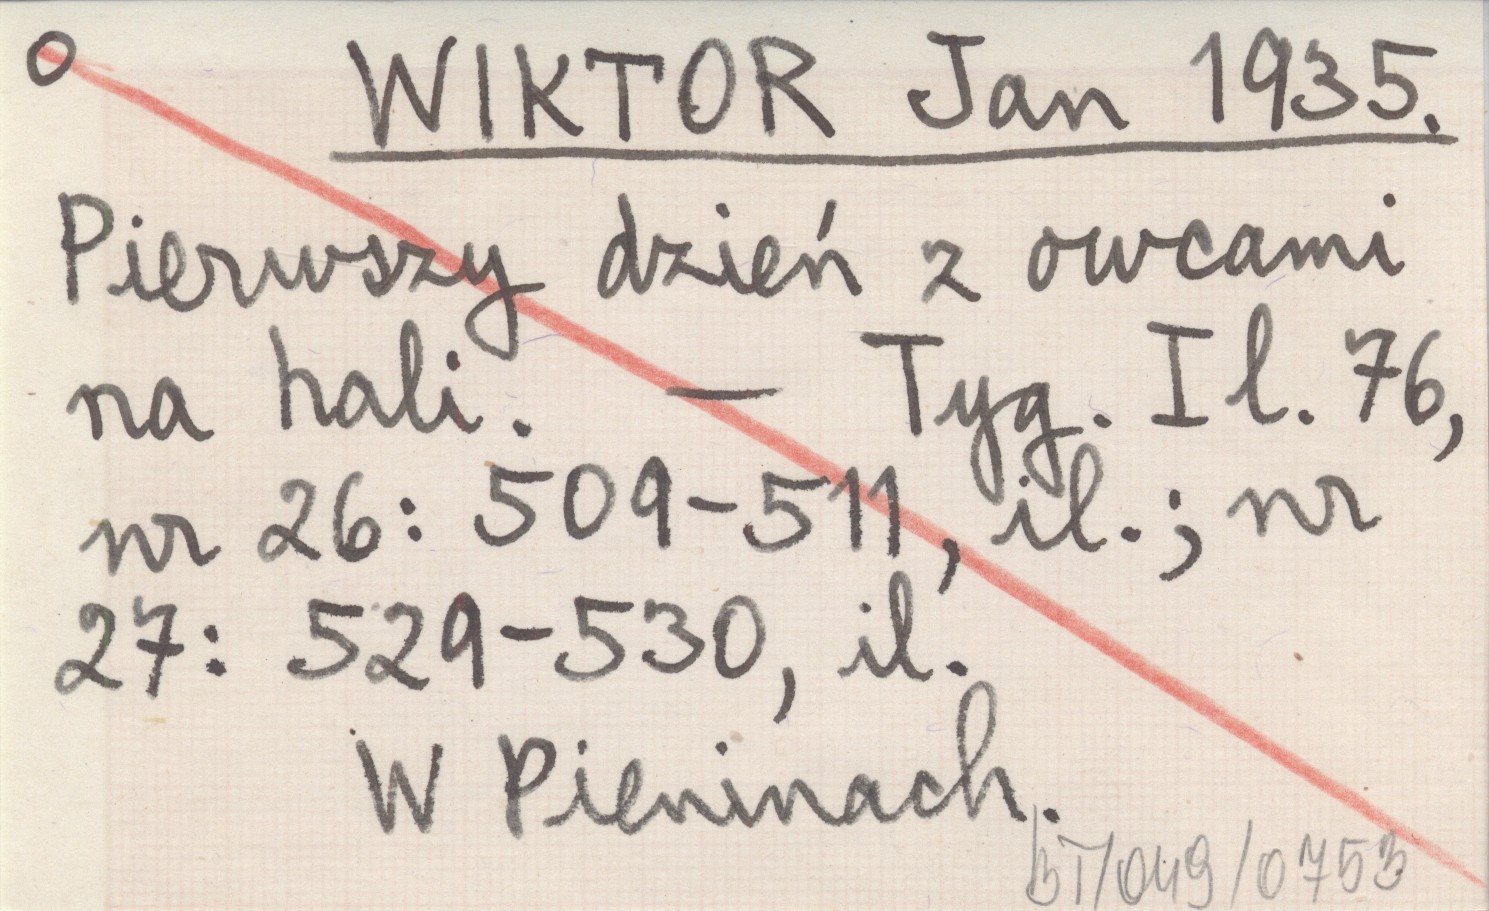 o WIKTOR Jan 1935.
Pierwszy dzień z owcami
na hali. — Tyg. Il. 76,
nr 26: 509-511, il.; nr
27: 529-530, il.
W Pieninach.
BT/049/0753